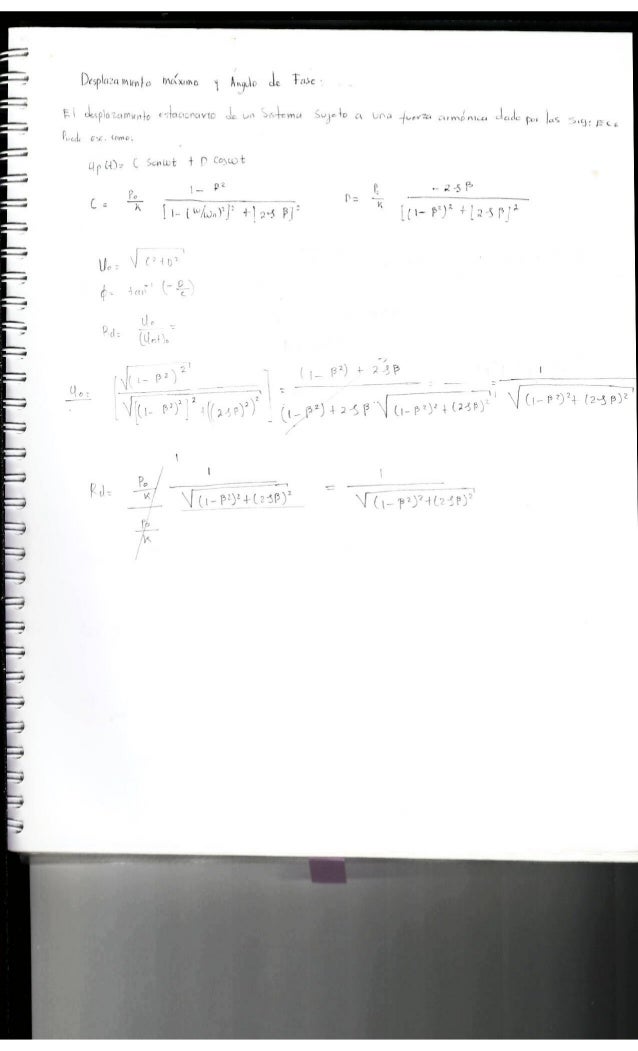 Desplazamiento máximo y Ángulo de Fase:
El desplazamiento estacionario de un Sistema Sujeto a una fuerza armónica dado por las Sig: ECs
Puede esc. como:
up(t)= C Senωt + D Cosωt
C = Po/k (1 - β²)/([1-(ω/ωn)²]² + [2ζβ]²) D = P/k (-2ζβ)/([(1-β²)² + [2ζβ]²)
Uo = √(C²+D²)
φ = tan⁻¹(-D/C)
Rd = Uo/(Ust)o =
uo = [√(1-β²)²/√([(1-β²)²]² + ((2ζβ)²)²)] = ((1-β²) + 2ζβ)/((1-β²) + 2ζβ · √((1-β²)² + (2ζβ)²)) = 1/√((1-β²)² + (2ζβ)²)
Rd = (Po/k)/(Po/k) 1/√((1-β²)²+(2ζβ)²) = 1/√((1-β²)²+(2ζβ)²)